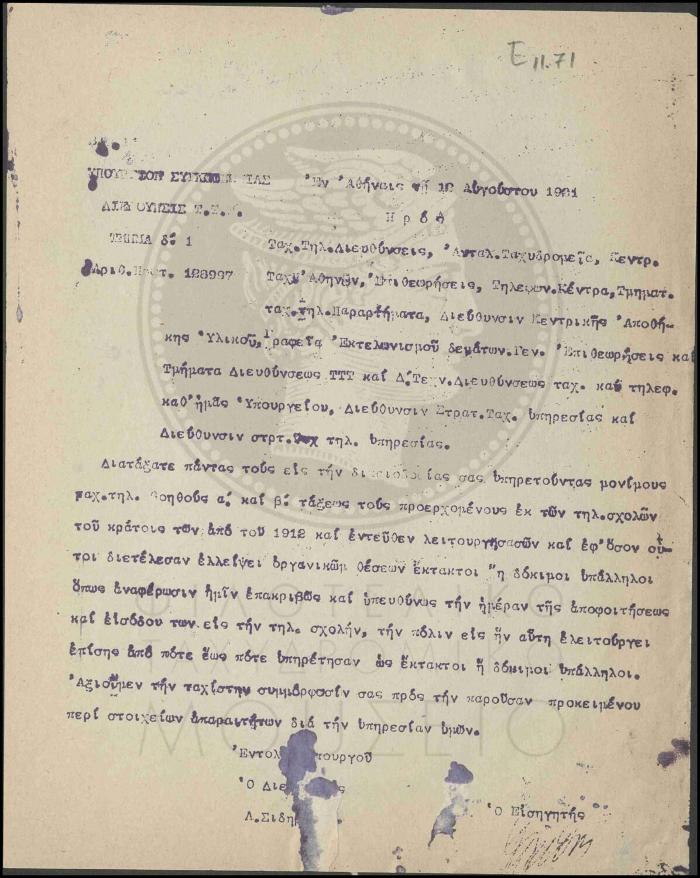 Ε 11.71
ΥΠΟΥΡΓΕΙΟΝ ΣΥΓΚΟΙΝΩΝΙΑΣ Ἐν Ἀθήναις τῇ 12 Αὐγούστου 1921
ΔΙΕΥΘΥΝΣΙΣ Τ.Τ.Τ. Π ρ ὸ ς
ΤΜΗΜΑ δ: 1 Ταχ.Τηλ.Διευθύνσεις, Ἀνταλ.Ταχυδρομεῖα, Κεντρ.
Ἀριθ.Πρωτ. 128997 Ταχ. Ἀθηνῶν, Ἐπιθεωρήσεις, Τηλεφων.Κέντρα, Τμηματ.
ταχ.τηλ.Παραρτήματα, Διεύθυνσιν Κεντρικῆς Ἀποθή-
κης Ὑλικοῦ, Γραφεῖα Ἐκτελωνισμοῦ δεμάτων.Γεν. Ἐπιθεωρήσεις καὶ
Τμήματα Διευθύνσεως ΤΤΤ καὶ Δ.Τεχν.Διευθύνσεως ταχ. καὶ τηλεφ.
καθ'ἡμᾶς Ὑπουργείου, Διεύθυνσιν Στρατ.Ταχ. ὑπηρεσίας καὶ
Διεύθυνσιν στρτ. τηλ. ὑπηρεσίας.
Διατάξατε πάντας τοὺς εἰς τὴν δικαιοδοσίας σας ὑπηρετοῦντας μονίμους
ταχ.τηλ. βοηθοὺς α: καὶ β: τάξεως τοὺς προερχομένους ἐκ τῶν τηλ.σχολῶν
τοῦ κράτοις τῶν ἀπὸ τοῦ 1912 καὶ ἐντεῦθεν λειτουργησασῶν καὶ ἐφ'ὅσον οὗ-
τοι διετέλεσαν ἐλλείψει ὀργανικῶμ θέσεων ἔκτακτοι ἢ δόκιμοι ὑπάλληλοι
ὅπως ἀναφέρωσιν ἡμῖν ἐπακριβῶς καὶ ὑπευθύνως τὴν ἡμέραν τῆς ἀποφοιτήσεως
καὶ εἰσόδου των εἰς τὴν τηλ. σχολήν, τὴν πόλιν εἰς ἣν αὕτη ἐλειτούργει
ἐπίσης ἀπὸ πότε ἕως πότε ὑπηρέτησαν ὡς ἔκτακτοι ἢ δόκιμοι ὑπάλληλοι.
Ἀξιοῦμεν τὴν ταχίστην συμμόρφωσίν σας πρὸς τὴν παροῦσαν προκειμένου
περὶ στοιχείων ἀπαραιτήτων διὰ τὴν ὑπηρεσίαν ὑμῶν.
Ἐντολῇ Ὑπουργοῦ
Ὁ Διευθυντής
Ὁ Εἰσηγητής
ΦΙΛΟΤΕΛΙΚΟ
ΤΑΧΥΔΡΟΜΙΚΟ
ΜΟΥΣΕΙΟ